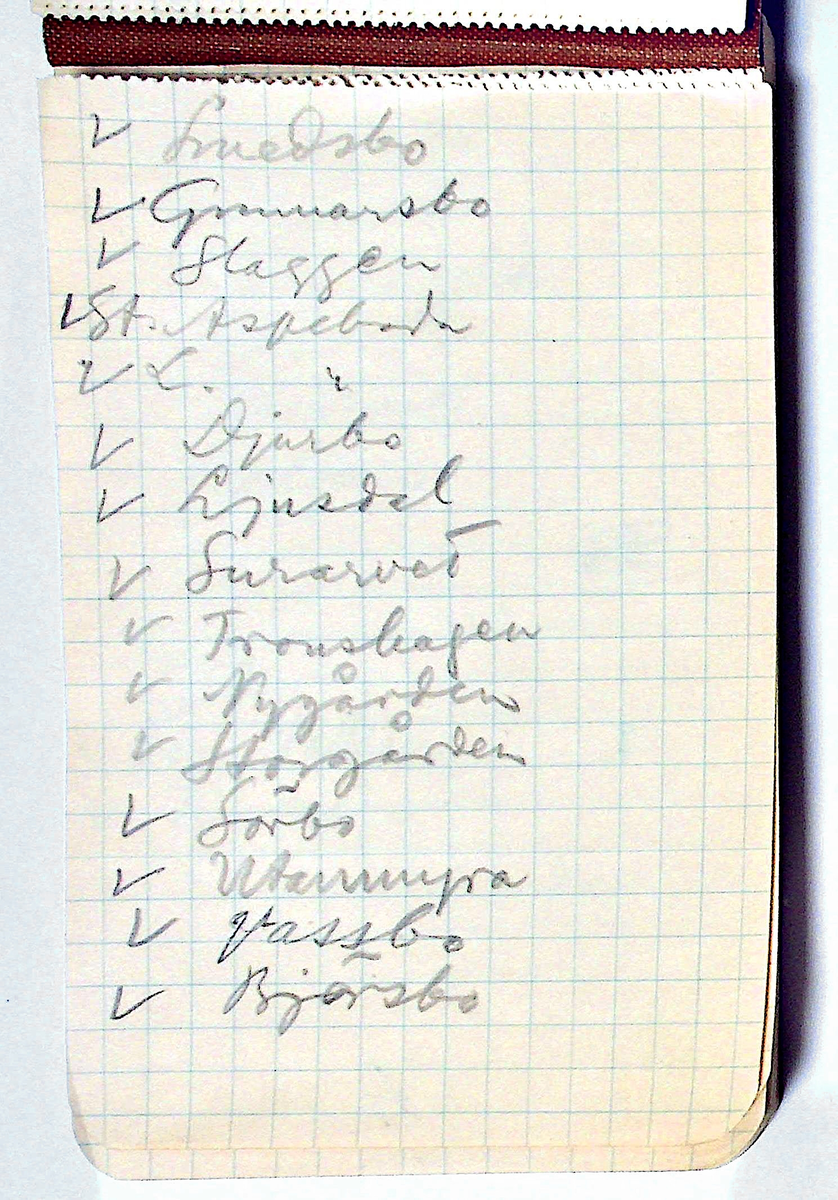 ✓ Smedsbo
✓ Gunnarsbo
✓ Slaggen
✓ St. Aspeboda
✓ L. "
✓ Djurbo
✓ Ljusdal
✓ Surarvet
✓ Tronshagen
✓ Nygården
✓ Storgården
✓ Sörbo
✓ Utanmyra
✓ Vassbo
✓ Björsbo